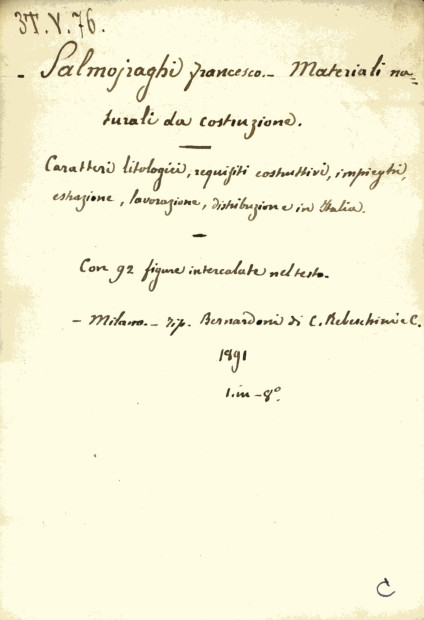 3T.V.76.
- Salmojraghi francesco. - Materiali na=
turali da costruzione.
Caratteri litologici, requisiti costruttivi, impieghi,
estrazione, lavorazione, distribuzione in Italia.
Con 92 figure intercalate nel testo.
- Milano. - Tip. Bernardoni di C. Rebeschini e C.
1891
1. in - 8º.
C